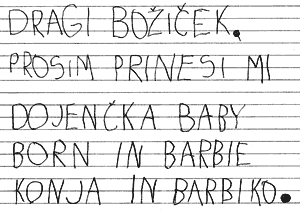 DRAGI BOŽIČEK.
PROSIM PRINESI MI
DOJENČKA BABY
BORN IN BARBIE
KONJA IN BARBIKO.